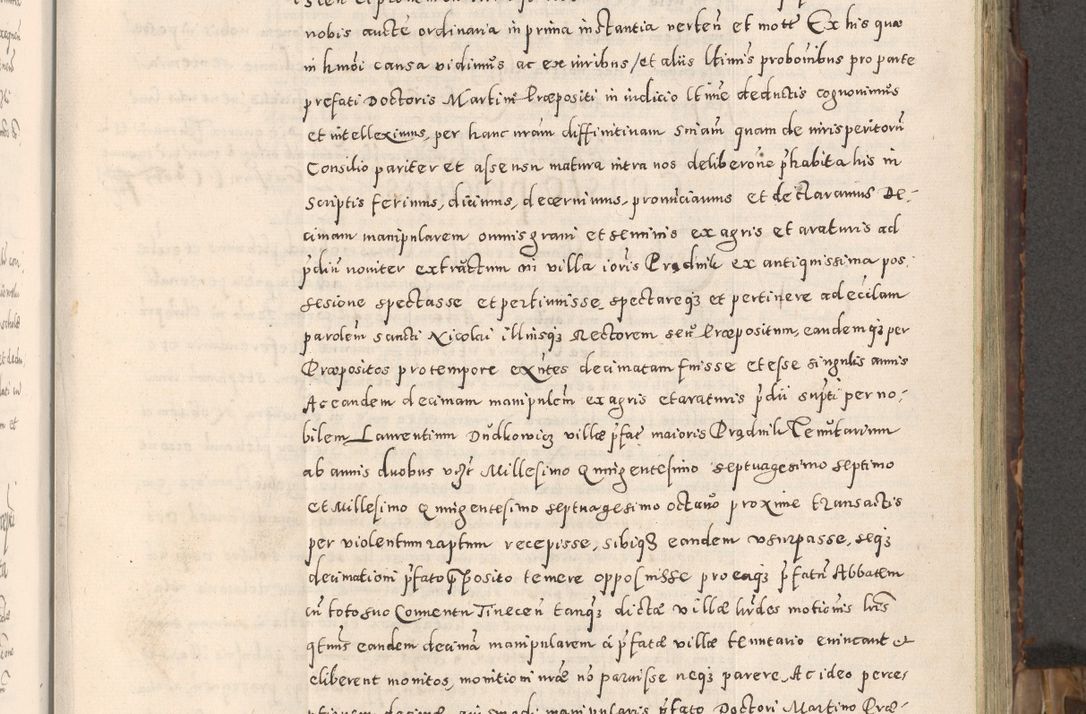 nobis aucte ordinaria in prima instantia verteń et motẽ Ex his quæ
in hmõi causa vidimus ac ex iuribus / et aliis ltimis probõibus pro parte
prefati Doctoris Martini Præpositi in iudicio ltime deductis cognovimus
et intelleximus, per hanc nrām diffinitivam snīam quam de iurisperitorū
Consilio pariter et assensu matura intra nos deliberōne p̃habita his in
scriptis ferimus, dicimus, decernimus, pronūciamus et declaramus De-
cimam manipularem omnis grani et seminis ex agris et araturis ad
p̃diū noviter extractum in villa ioris Prądnik ex antiquissima pos-
sessione spectasse et pertinuisse, spectareqз et pertinere ad ecclam
parolem sancti Nicolai illiusqз Rectorem seu Præpositum, eandemqз per
Præpositos pro tempore exñtes decimatam fuisse et esse singulis annis
Ac eandem decimam manipulem ex agris et araturis p̃dii sup̃ti per no-
bilem Laurentium Dudkowicz villæ p̃fatæ maioris Prądnik Tenutarium
ab annis duobus vzt Millesimo Quingentesimo septuagesimo septimo
et Millesimo Quingentesimo septuagesimo octavo proxime transactis
per violentum raptum recepisse, sibiqз eandem usurpasse, seqз
decimationi p̃fato Præposito temere opposuisse proeaqз p̃fatū Abbatem
cū toto suo Conventu Tinecen̄ tanqз dictæ villæ hrdes motionis lris
qtm̄s eandem decimā manipularem á p̃fatæ villæ tenutario evincant et
eliberent monitos, monitioni nræ nō paruisse neqз parere, Ac ideo perce-
manipularis p̃fato Doctori Martino Præ-